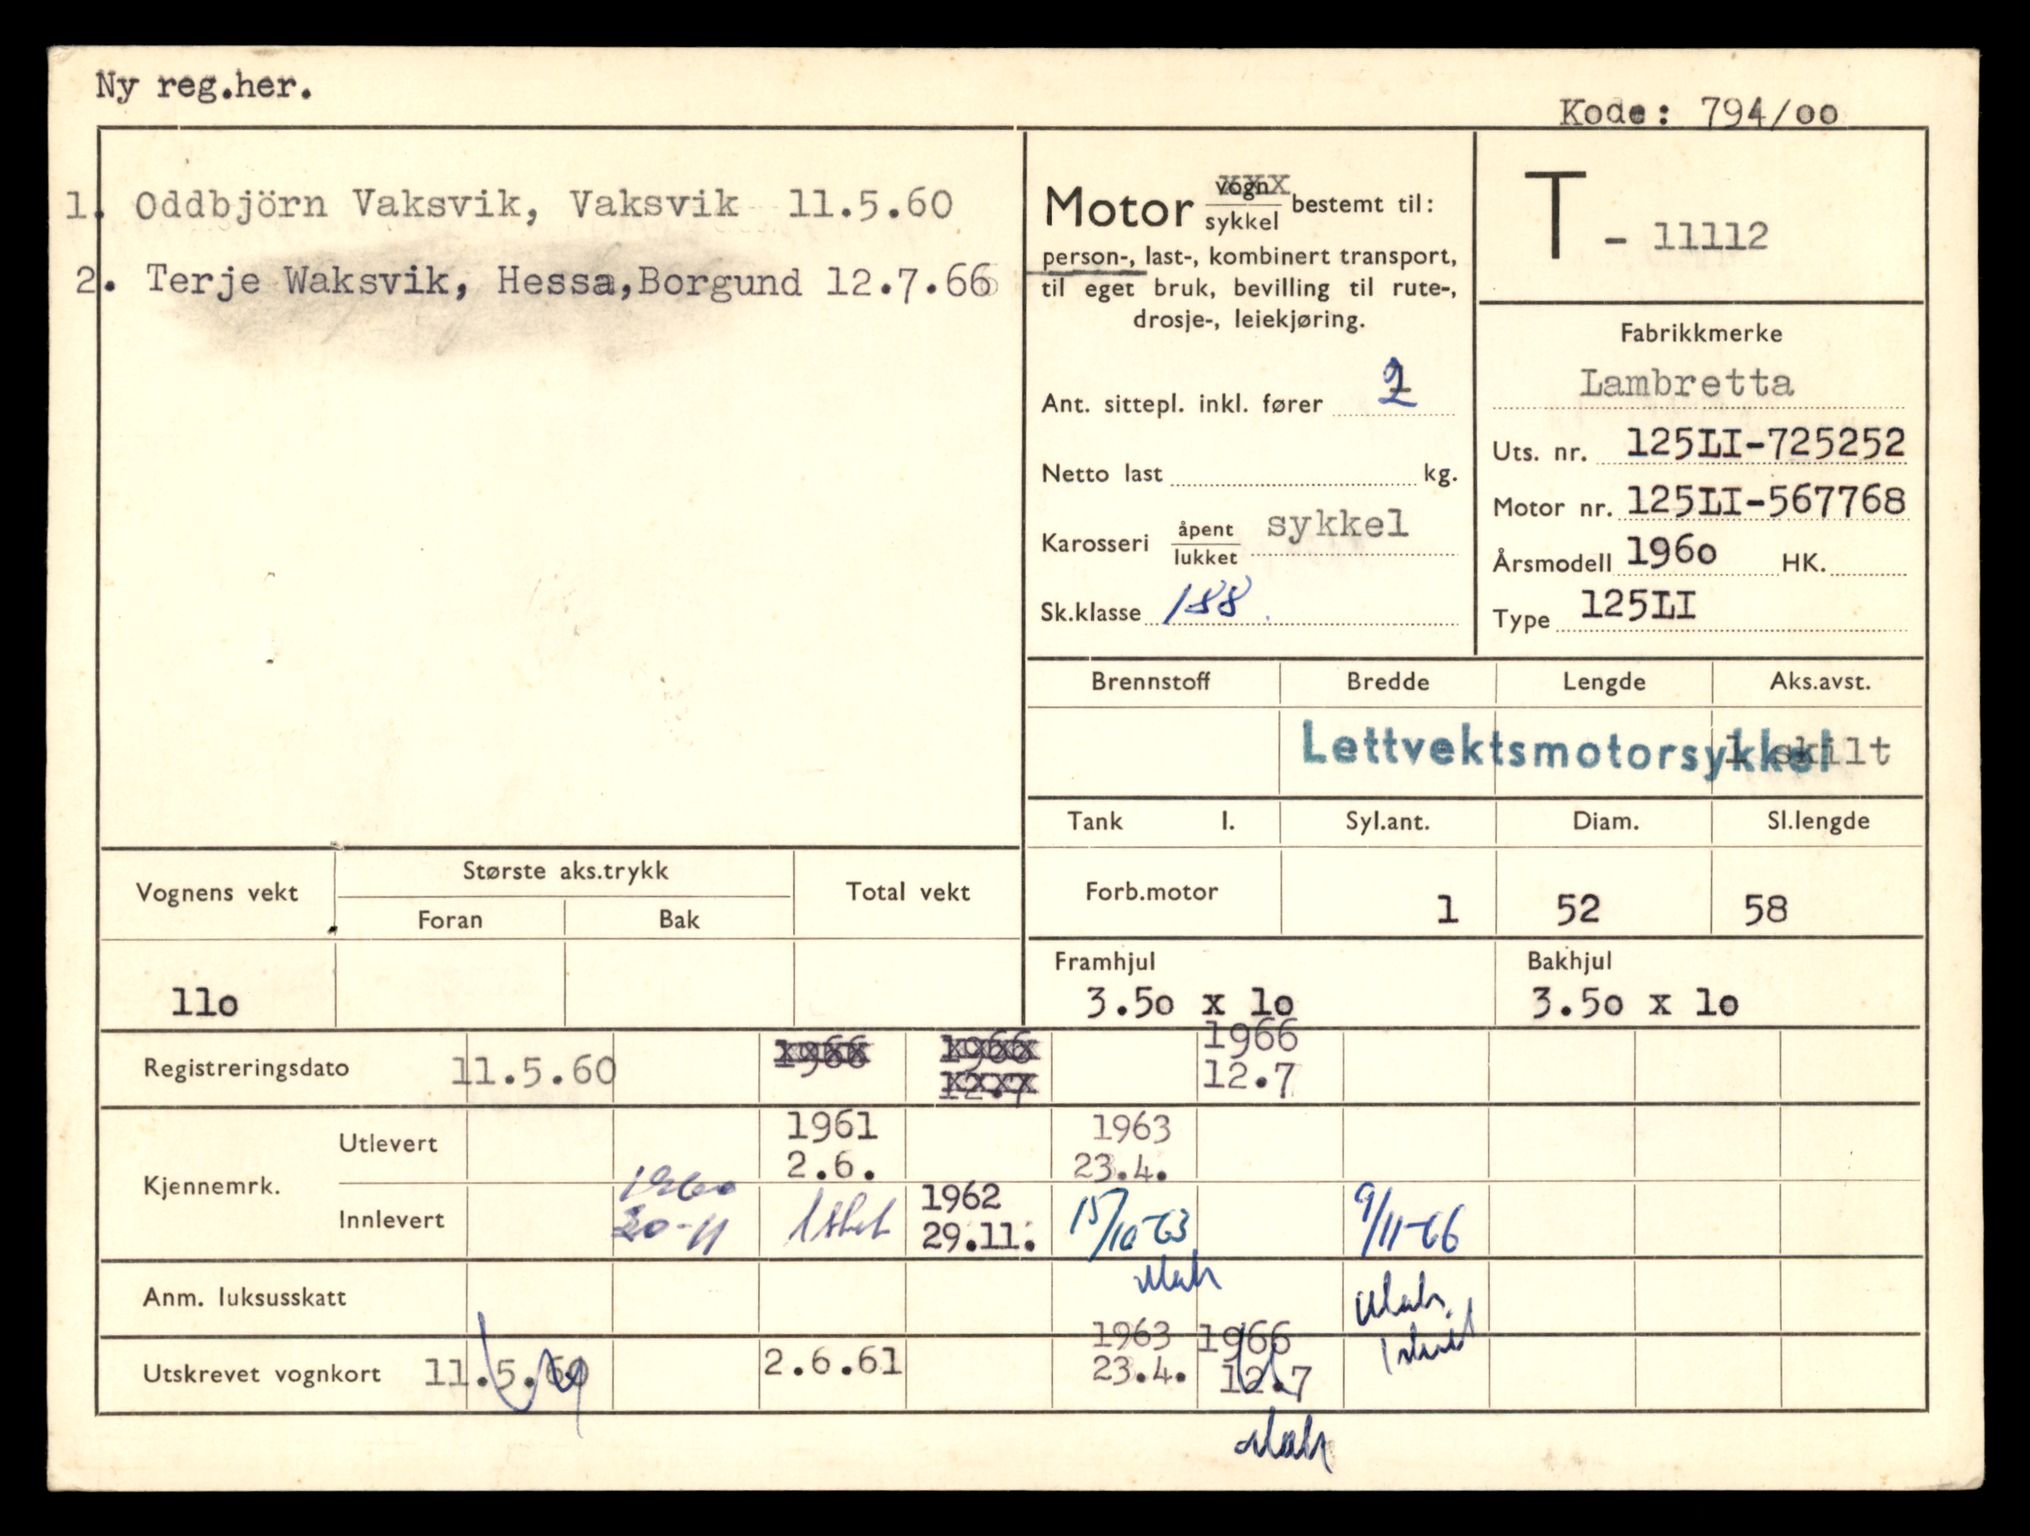 Ny reg.her.
Kode: 794/oo
1. Oddbjörn Vaksvik, Vaksvik 11.5.60
2. Terje Waksvik, Hessa,Borgund 12.7.66
Motor vogn/sykkel bestemt til:
person-, last-, kombinert transport,
til eget bruk, bevilling til rute-,
drosje-, leiekjøring.
Ant. sittepl. inkl. fører 2
Netto last kg.
Karosseri åpent/lukket sykkel
Sk.klasse 188
T - 11112
Fabrikkmerke
Lambretta
Uts. nr. 125LI-725252
Motor nr. 125LI-567768
Årsmodell 196o HK.
Type 125LI
Brennstoff Bredde Lengde Aks.avst.
Lettvektsmotorsykkel 1 skilt
Tank l. Syl.ant. Diam. Sl.lengde
Forb.motor 1 52 58
Framhjul Bakhjul
3.5o x 1o 3.5o x 1o
Vognens vekt Største aks.trykk Total vekt
Foran Bak
11o
1966 1966 1966
Registreringsdato 11.5.60 12.7 12.7
1961 1963
Utlevert 2.6. 23.4.
Kjennemrk.
1960 1962
Innlevert 30-11 29.11. 15/10-63 9/11-66
Anm. luksusskatt
1963 1966
Utskrevet vognkort 11.5.60 2.6.61 23.4. 12.7